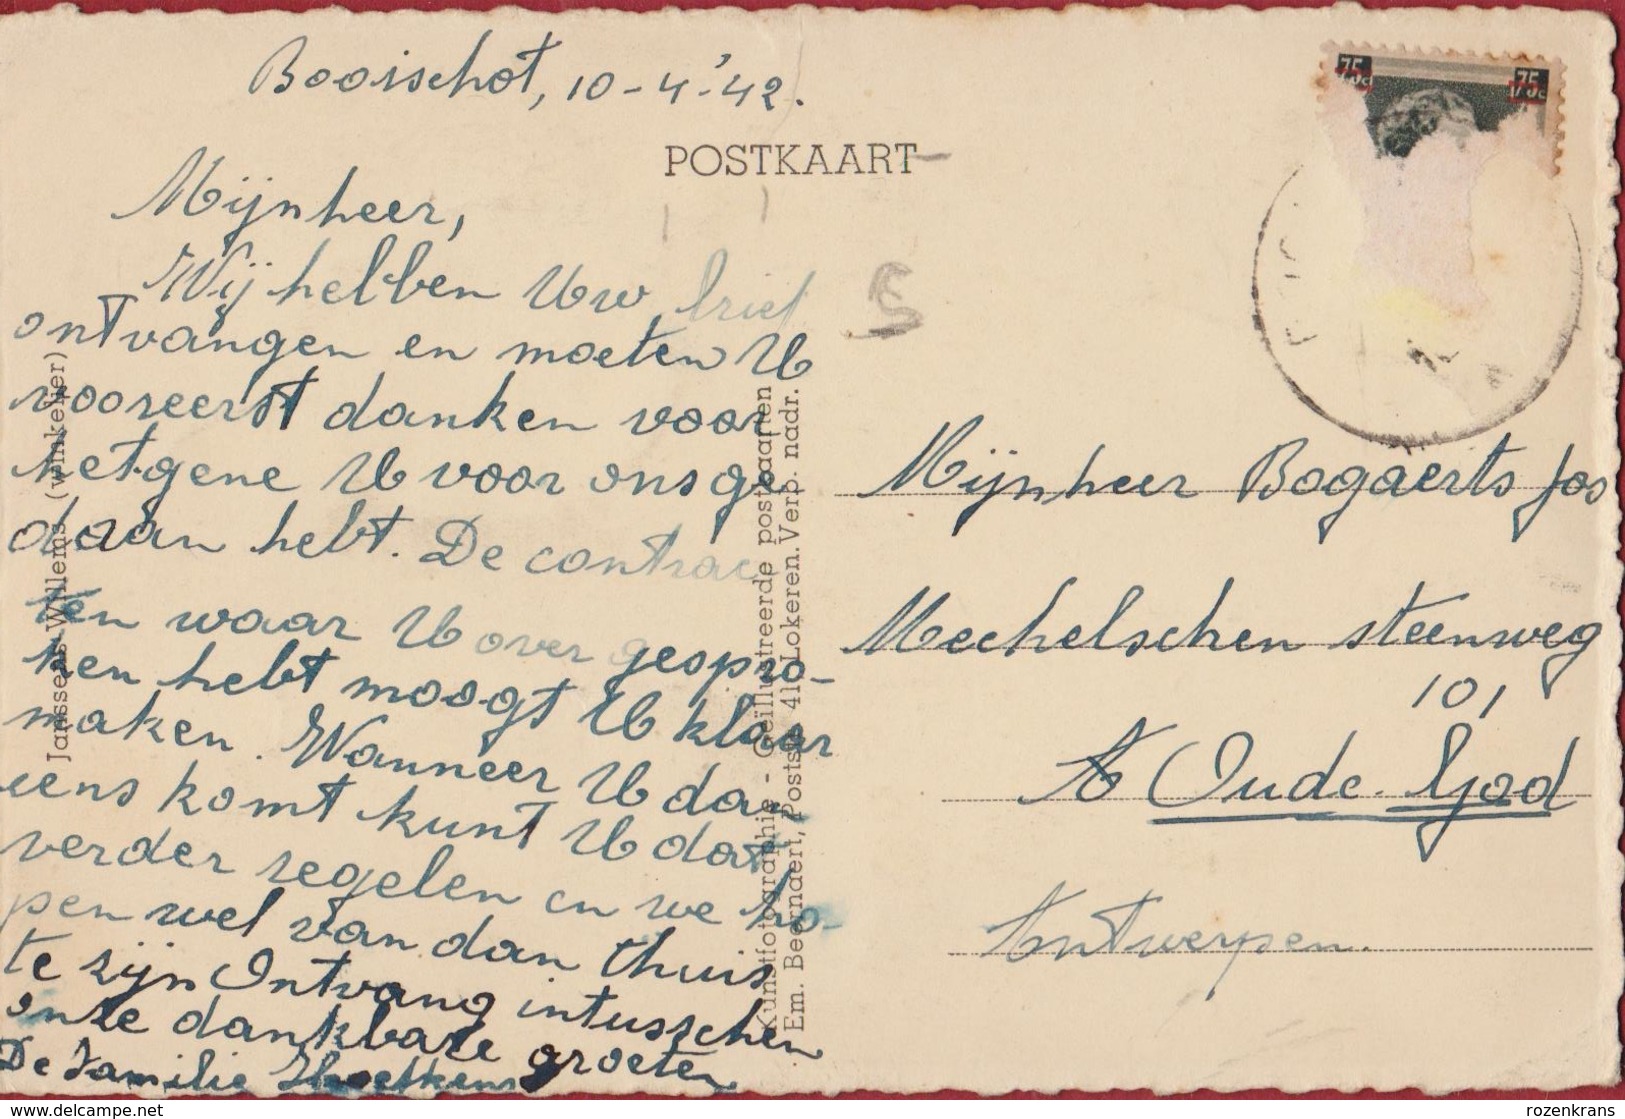 Booischot, 10-4-'42.
POSTKAART
75c 75c
Mijnheer,
Wij hebben Uw brief
ontvangen en moeten U
vooreerst danken voor
hetgene U voor ons ge
daan hebt. De contrac
ten waar U over gespro-
ken hebt moogt U klaar
maken. Wanneer U dan
eens komt kunt U dat
verder regelen en we ho-
pen wel van dan thuis
te zijn Ontvang intusschen
onze dankbare groeten
De Familie
Janssens-Willems (winkelier)
Kunstfotographie - Geïllustreerde postkaarten
Em. Beernaert, Lokeren. Verb. nadr.
Mijnheer Bogaerts Jos
Mechelschen steenweg
101
Oude-God
Antwerpen.
delcampe.net
rozenkrans